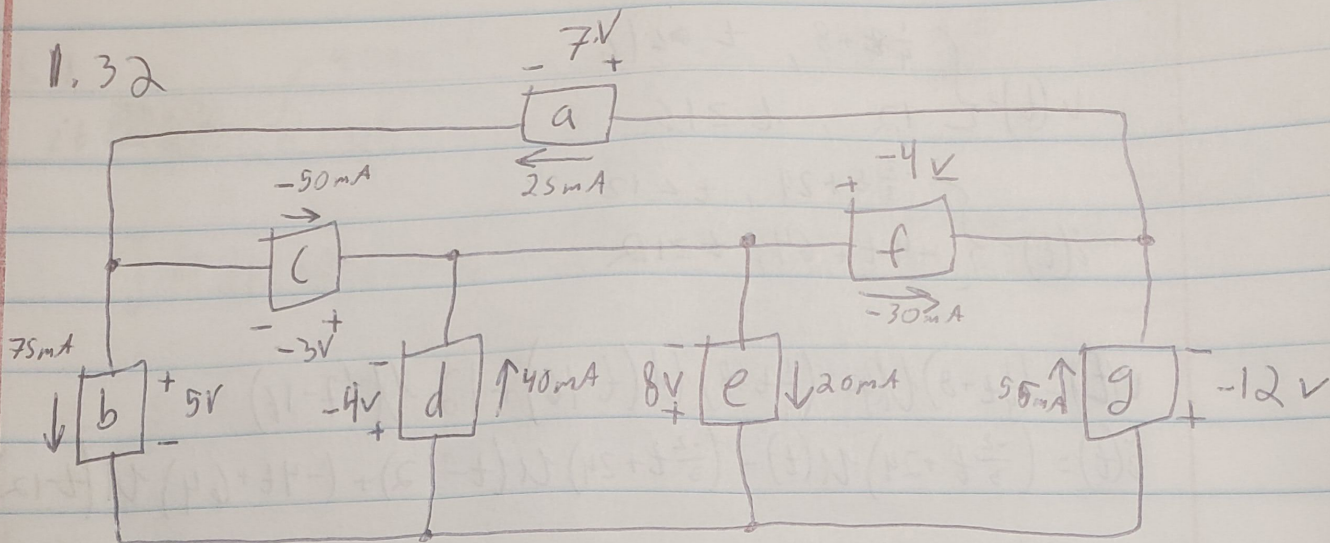 1.32
7V
- +
a
25mA
-50mA
c
- +
-3V
-4V
+
f
-30mA
75mA
b
+
5V
-
-
-4V
+
d
40mA
-
8V
+
e
20mA
g
-
-12V
+